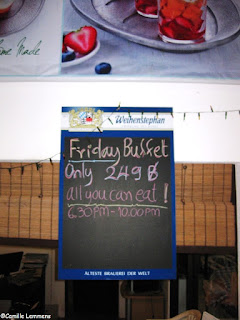 ome Made
Weihenstephan
Friday Buffet
Only 249 ฿
all you can eat!
6.30PM-10.00PM
ÄLTESTE BRAUEREI DER WELT
©Camille Lemmens